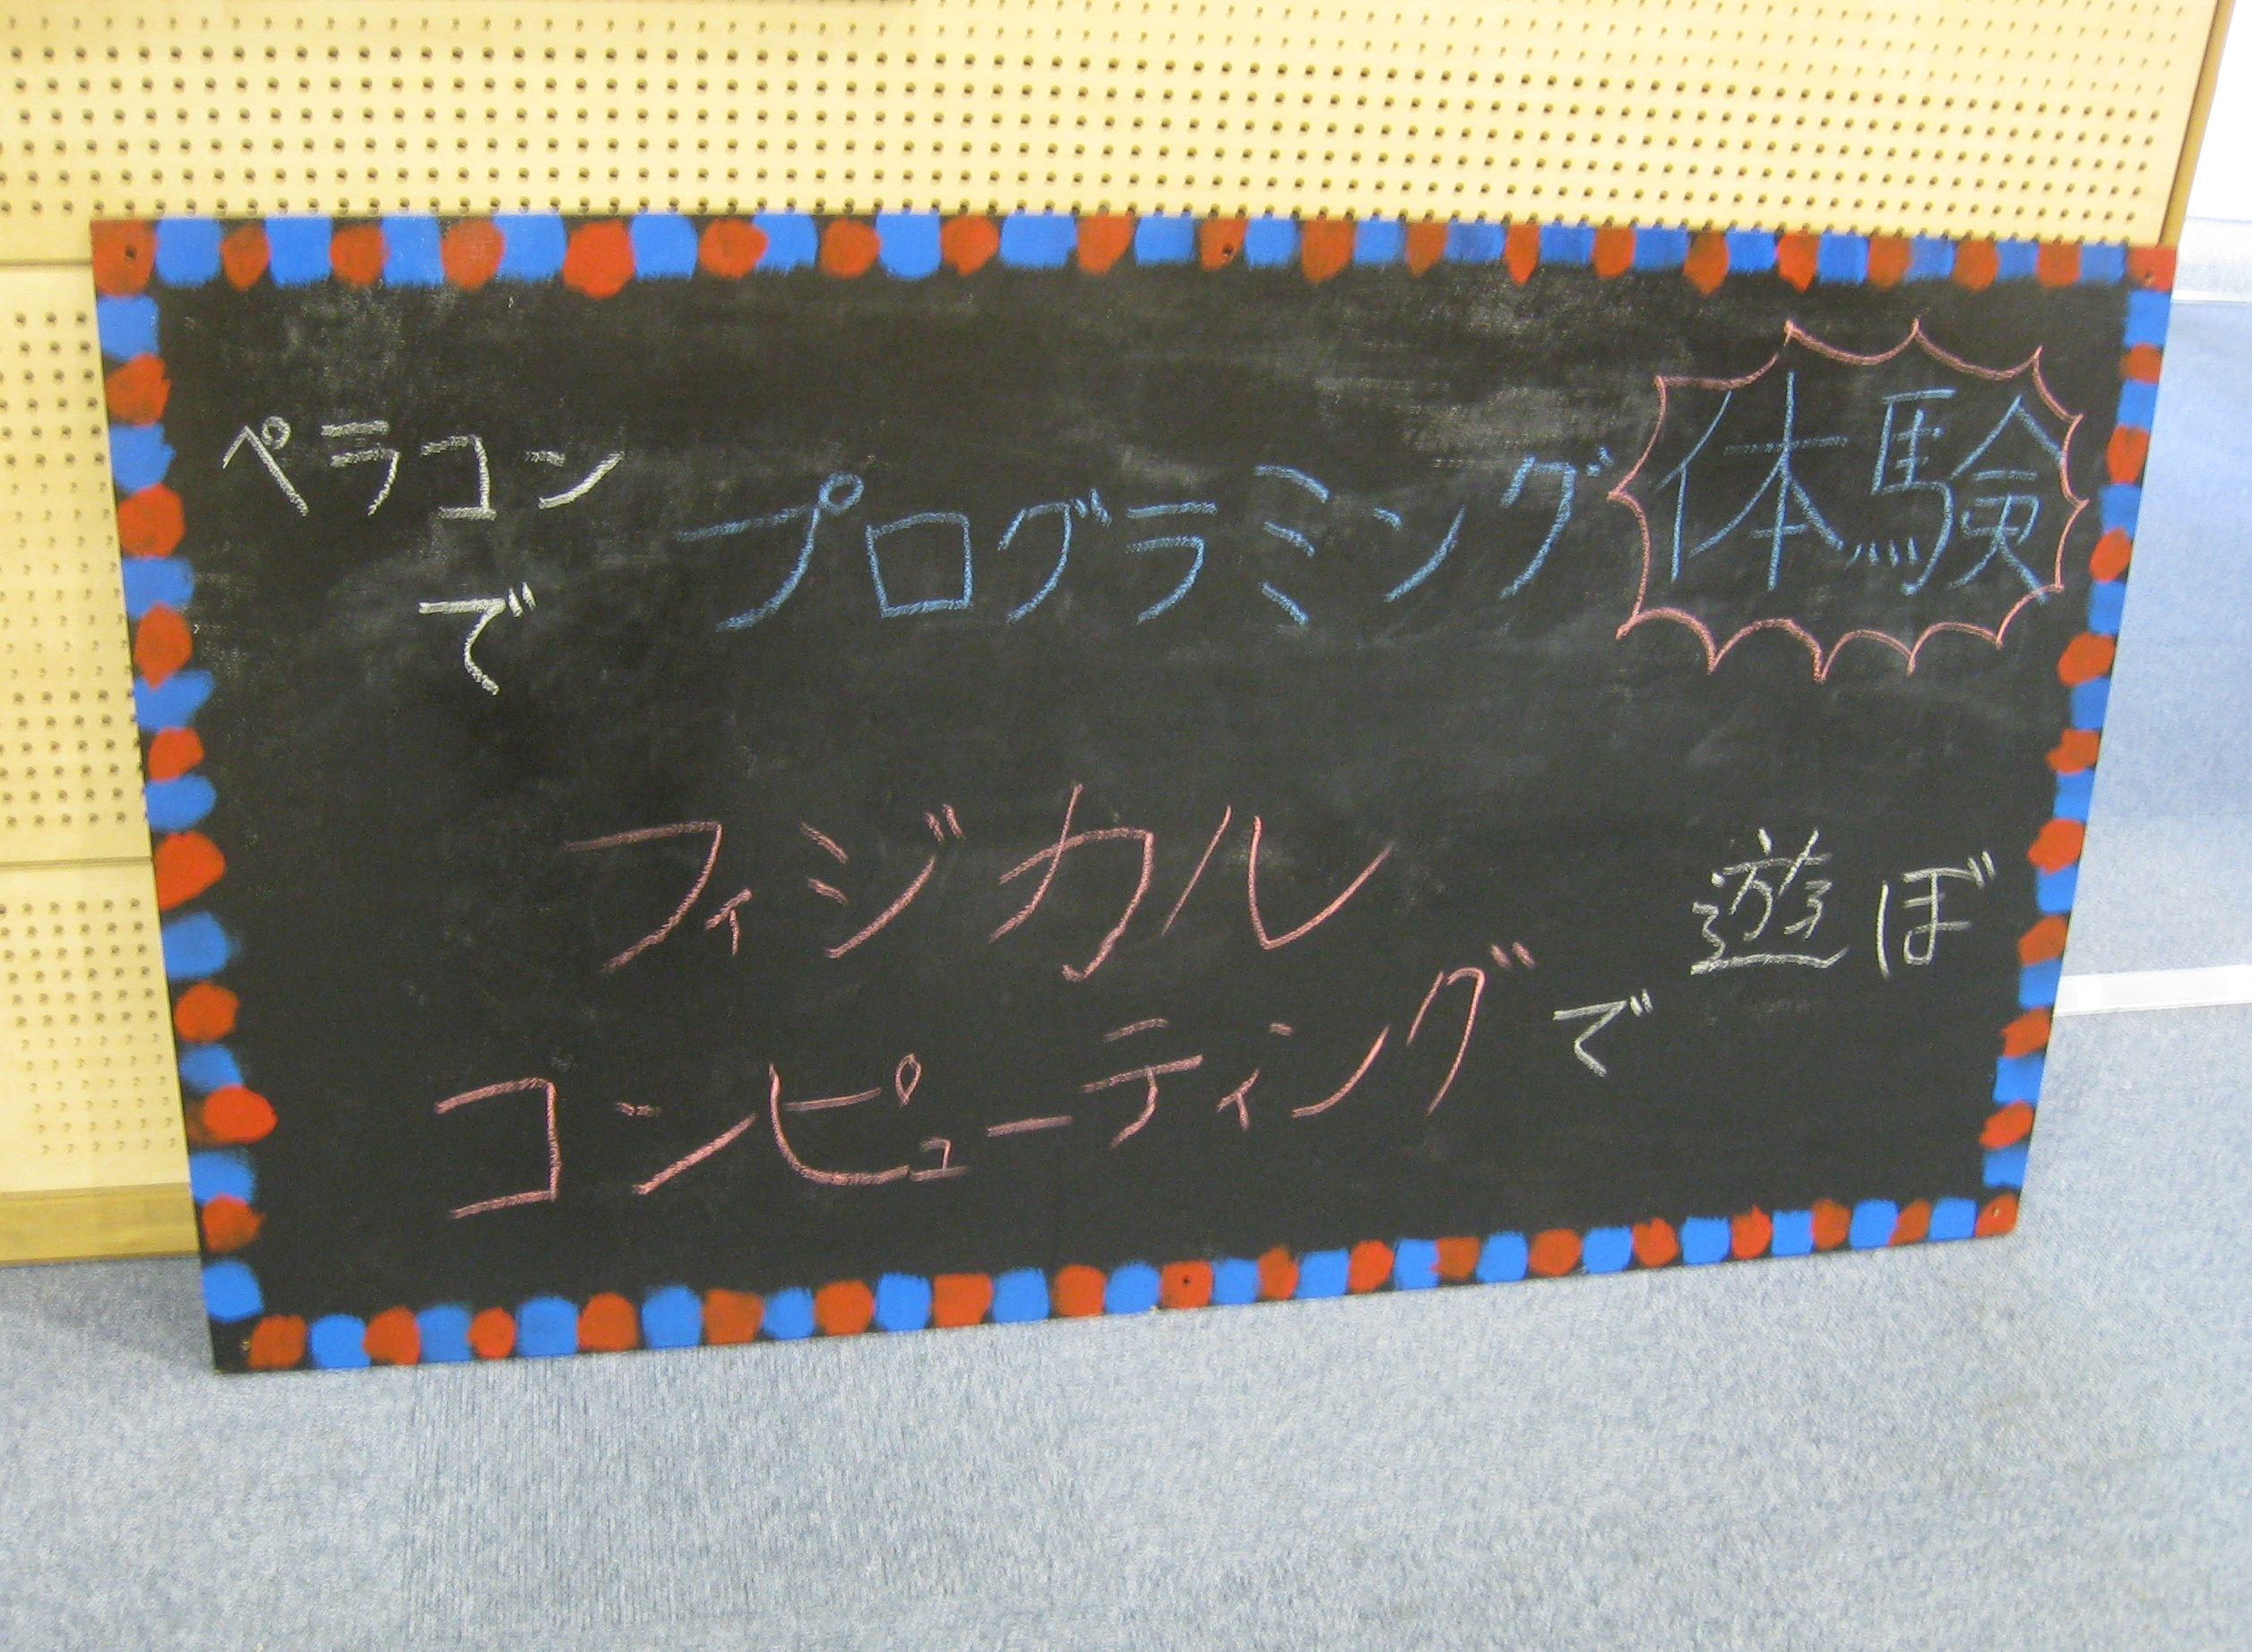 ペラコンで
プログラミング体験
フィジカル
コンピューティングで
遊ぼ